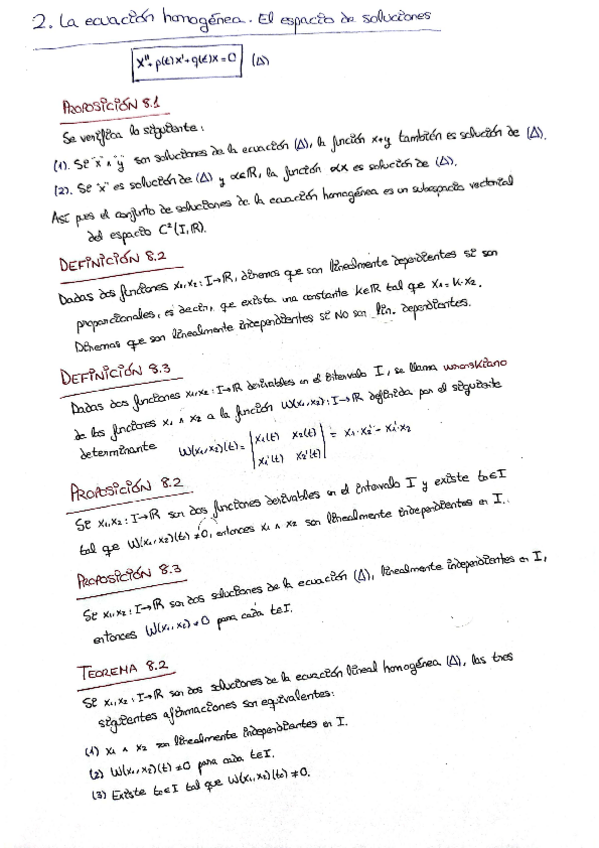 2. La ecuación homogénea. El espacio de soluciones
x''+p(t)x'+q(t)x=0 (Δ)
PROPOSICIÓN 8.1
Se verifica lo siguiente:
(1). Si "x" ∧ "y" son soluciones de la ecuación (Δ), la función x+y también es solución de (Δ).
(2). Si "x" es solución de (Δ) y α∈ℝ, la función αx es solución de (Δ).
Así pues el conjunto de soluciones de la ecuación homogénea es un subespacio vectorial
del espacio C²(I,ℝ).
DEFINICIÓN 8.2
Dadas dos funciones x₁,x₂: I→ℝ, diremos que son linealmente dependientes si son
proporcionales, es decir, que exista una constante k∈ℝ tal que x₁=k·x₂.
Diremos que son linealmente independientes si NO son lin. dependientes.
DEFINICIÓN 8.3
Dadas dos funciones x₁,x₂: I→ℝ derivables en el intervalo I, se llama wronskiano
de las funciones x₁ ∧ x₂ a la función W(x₁,x₂): I→ℝ definida por el siguiente
determinante W(x₁,x₂)(t)= |x₁(t) x₂(t)| = x₁·x₂' - x₁'·x₂
|x₁'(t) x₂'(t)|
PROPOSICIÓN 8.2
Si x₁,x₂: I→ℝ son dos funciones derivables en el intervalo I y existe t₀∈I
tal que W(x₁,x₂)(t₀)≠0, entonces x₁ ∧ x₂ son linealmente independientes en I.
PROPOSICIÓN 8.3
Si x₁,x₂: I→ℝ son dos soluciones de la ecuación (Δ), linealmente independientes en I,
entonces W(x₁,x₂)≠0 para cada t∈I.
TEOREMA 8.2
Si x₁,x₂: I→ℝ son dos soluciones de la ecuación lineal homogénea (Δ), las tres
siguientes afirmaciones son equivalentes:
(1) x₁ ∧ x₂ son linealmente independientes en I.
(2) W(x₁,x₂)(t)≠0 para cada t∈I.
(3) Existe t₀∈I tal que W(x₁,x₂)(t₀)≠0.